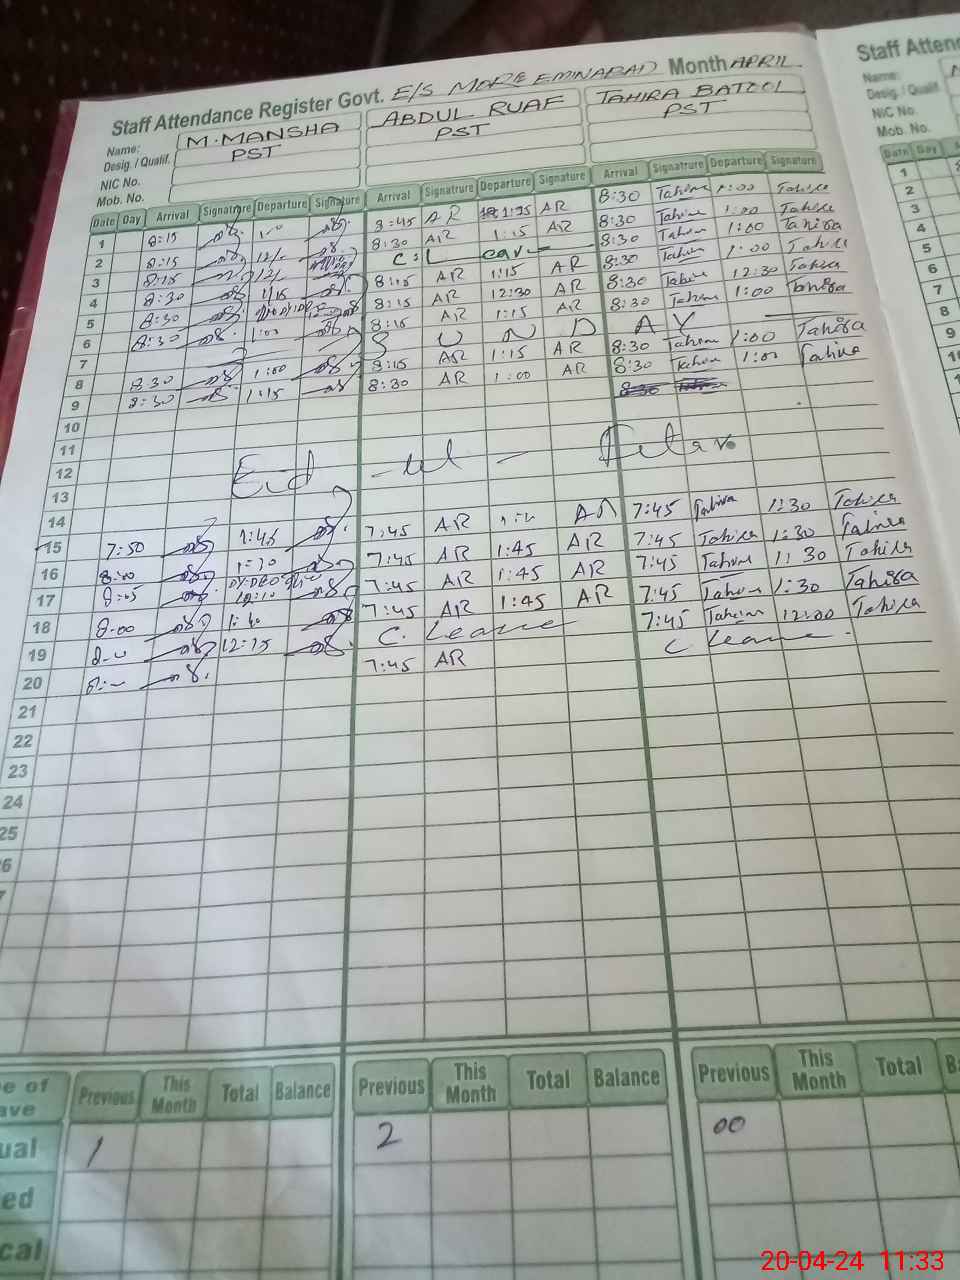 Staff Attendance Register Govt. E/S MORE EMINABAD Month APRIL
Name: M.MANSHA ABDUL RUAF TAHIRA BATOOL
Desig. / Qualif. PST PST PST
NIC No.
Mob. No.
Date Day Arrival Signatrure Departure Signature Arrival Signatrure Departure Signature Arrival Signatrure Departure Signature
1 8:15 8:45 AR 1:15 AR 8:30 Tahira 1:00 Tahira
2 8:15 8:30 AR 1:15 AR 8:30 Tahira 1:00 Tahira
3 8:15 C: Leave 8:30 Tahira 1:00 Tahira
4 8:30 1:15 8:15 AR 1:15 AR 8:30 Tahira 1:00 Tahira
5 8:30 8:15 AR 12:30 AR 8:30 Tahira 12:30 Tahira
6 8:30 1:00 8:15 AR 1:15 AR 8:30 Tahira 1:00 Tahira
7 S U N D A Y
8 8:30 1:00 8:15 AR 1:15 AR 8:30 Tahira 1:00 Tahira
9 8:30 1:15 8:30 AR 1:00 AR 8:30 Tahira 1:00 Tahira
10
11
12 Eid - ul -
13
14
15 7:50 1:45 7:45 AR AR 7:45 Tahira 1:30 Tahira
16 8:00 1:30 7:45 AR 1:45 AR 7:45 Tahira 1:30 Tahira
17 8:05 12:10 7:45 AR 1:45 AR 7:45 Tahira 1:30 Tahira
18 8:00 7:45 AR 1:45 AR 7:45 Tahira 1:30 Tahira
19 C. Leave 7:45 Tahira 12:00 Tahira
20 7:45 AR C Leave
21
22
23
24
25
6
7
e of ave Previous This Month Total Balance Previous This Month Total Balance Previous This Month Total B
ual 1 2 00
ed
cal
Staff Atten
Name:
Desig. / Qualif
NIC No.
Mob. No.
Date Day
1
2
3
4
5
6
7
8
9
20-04-24 11:33